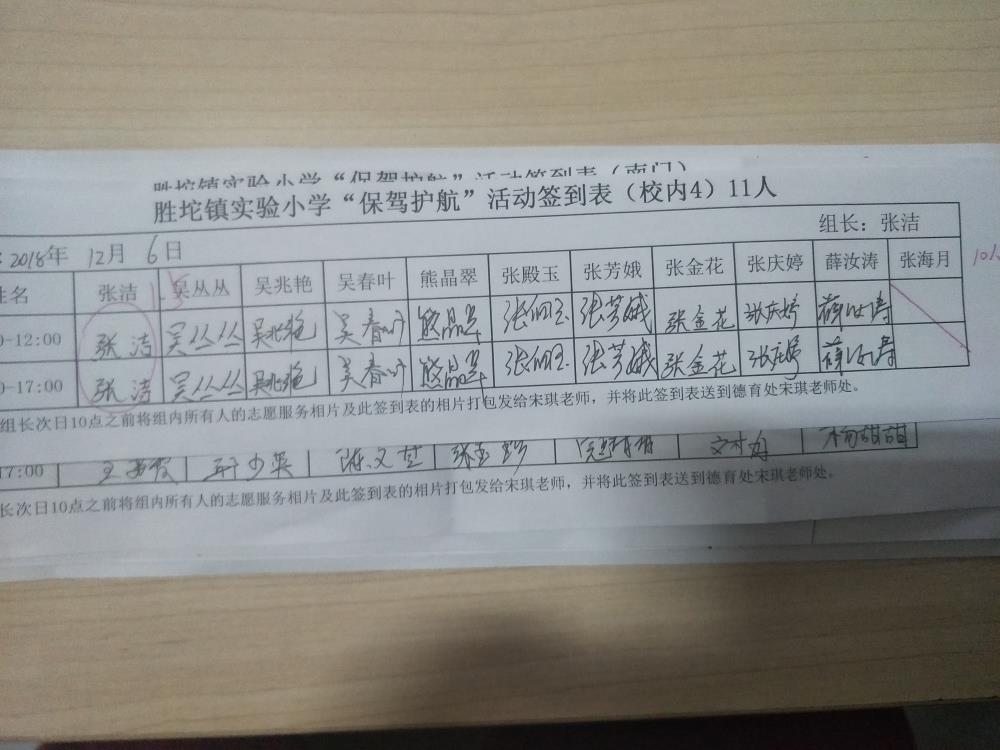 胜坨镇实验小学“保驾护航”活动签到表（南门）
胜坨镇实验小学“保驾护航”活动签到表（校内4）11人
：2018年 12月 6日 组长：张洁
姓名 张洁 吴丛丛 吴兆艳 吴春叶 熊晶翠 张殿玉 张芳娥 张金花 张庆婷 薛汝涛 张海月
0-12:00 张洁 吴丛丛 吴兆艳 吴春叶 熊晶翠 张殿玉 张芳娥 张金花 张庆婷 薛汝涛
0-17:00 张洁 吴丛丛 吴兆艳 吴春叶 熊晶翠 张殿玉 张芳娥 张金花 张庆婷 薛汝涛
组长次日10点之前将组内所有人的志愿服务相片及此签到表的相片打包发给宋琪老师，并将此签到表送到德育处宋琪老师处。
17:00 杨甜甜
长次日10点之前将组内所有人的志愿服务相片及此签到表的相片打包发给宋琪老师，并将此签到表送到德育处宋琪老师处。